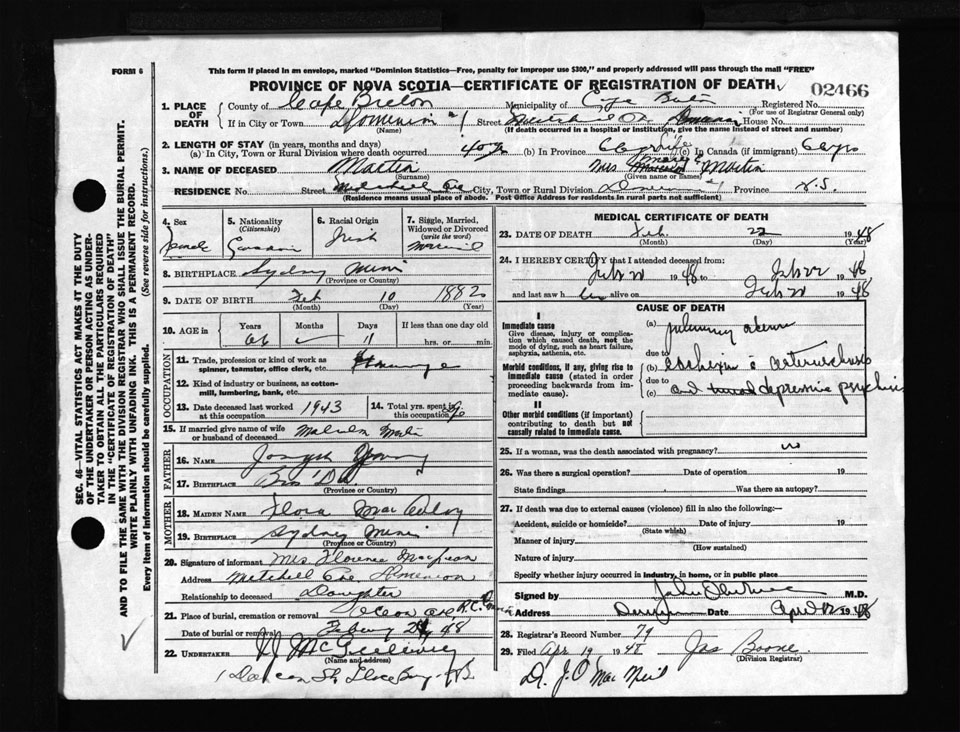 FORM 6
This form if placed in an envelope, marked "Dominion Statistics—Free, penalty for improper use $300," and properly addressed will pass through the mail "FREE"
PROVINCE OF NOVA SCOTIA—CERTIFICATE OF REGISTRATION OF DEATH
02466
1. PLACE OF DEATH
County of Cape Breton Municipality of Cape Breton Registered No.
(For use of Registrar General only)
If in City or Town Dominion #1 Street Mitchell Dominion House No.
(Name) (If death occurred in a hospital or institution, give the name instead of street and number)
2. LENGTH OF STAY (in years, months and days)
(a) In City, Town or Rural Division where death occurred 40 yrs (b) In Province (c) In Canada (if immigrant) 66 yrs
3. NAME OF DECEASED Martin Mrs. Martin
(Surname) (Given name or names)
RESIDENCE No. Street Mitchell Ave City, Town or Rural Division #1 Province N.S.
(Residence means usual place of abode. Post Office Address for residents in rural parts not sufficient)
4. Sex
Female
5. Nationality (Citizenship)
Canadian
6. Racial Origin
Irish
7. Single, Married, Widowed or Divorced (write the word)
8. BIRTHPLACE Sydney Mines
(Province or Country)
9. DATE OF BIRTH Feb 10 1882
(Month) (Day) (Year)
10. AGE in Years Months Days If less than one day old
66 11 hrs. or min.
OCCUPATION
11. Trade, profession or kind of work as spinner, teamster, office clerk, etc.
12. Kind of industry or business, as cotton-mill, lumbering, bank, etc.
13. Date deceased last worked at this occupation 1943
14. Total yrs. spent in this occupation
15. If married give name of wife or husband of deceased Malcolm Martin
FATHER
16. NAME Joseph Young
17. BIRTHPLACE Bras D'Or
(Province or Country)
MOTHER
18. MAIDEN NAME Flora
19. BIRTHPLACE Sydney Mines
(Province or Country)
20. Signature of informant Mrs. Florence
Address Mitchell Ave Dominion
Relationship to deceased Daughter
21. Place of burial, cremation or removal R.C.
Date of burial or removal 48
22. UNDERTAKER
(Name and address)
St. Glace Bay C.B.
MEDICAL CERTIFICATE OF DEATH
23. DATE OF DEATH Feb. 22 1948
(Month) (Day) (Year)
24. I HEREBY CERTIFY that I attended deceased from:
Feb 20 1948 to Feb 22 1948
and last saw her alive on Feb 20 1948
CAUSE OF DEATH
I
Immediate cause
Give disease, injury or complication which caused death, not the mode of dying, such as heart failure, asphyxia, asthenia, etc.
(a) pulmonary edema
due to
Morbid conditions, if any, giving rise to immediate cause (stated in order proceeding backwards from immediate cause).
(b)
due to
(c) depressive
II
Other morbid conditions (if important) contributing to death but not causally related to immediate cause.
25. If a woman, was the death associated with pregnancy? no
26. Was there a surgical operation? Date of operation 19
State findings Was there an autopsy?
27. If death was due to external causes (violence) fill in also the following:—
Accident, suicide or homicide? Date of injury 19
(State which)
Manner of injury
(How sustained)
Nature of injury
Specify whether injury occurred in industry, in home, or in public place
Signed by M.D.
Address Date April 12 1948
28. Registrar's Record Number 79
29. Filed Apr 19 1948 Jas Boone
(Division Registrar)
Dr. J. O. Mac Neil
SEC. 46—VITAL STATISTICS ACT MAKES IT THE DUTY
OF THE UNDERTAKER OR PERSON ACTING AS UNDER-
TAKER TO OBTAIN ALL THE PARTICULARS REQUIRED
IN THE "CERTIFICATE OF REGISTRATION OF DEATH"
AND TO FILE THE SAME WITH THE DIVISION REGISTRAR WHO SHALL ISSUE THE BURIAL PERMIT.
WRITE PLAINLY WITH UNFADING INK. THIS IS A PERMANENT RECORD.
Every Item of Information should be carefully supplied. (See reverse side for instructions.)